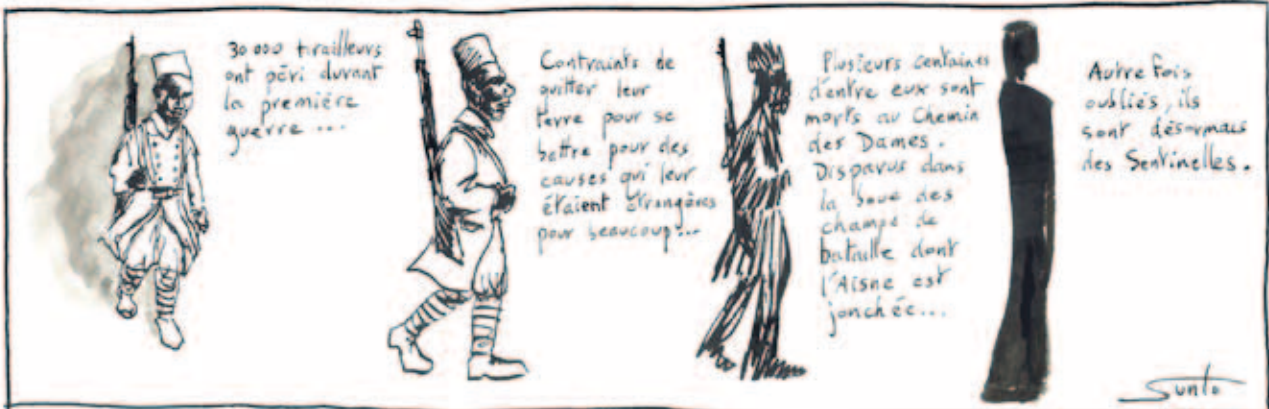 30 000 tirailleurs
ont péri durant
la première
guerre ...
Contraints de
quitter leur
terre pour se
battre pour des
causes qui leur
étaient étrangères
pour beaucoup...
Plusieurs centaines
d'entre eux sont
morts au Chemin
des Dames.
Disparus dans
la boue des
champs de
bataille dont
l'Aisne est
jonchée...
Autrefois
oubliés, ils
sont désormais
des Sentinelles.
Sunto